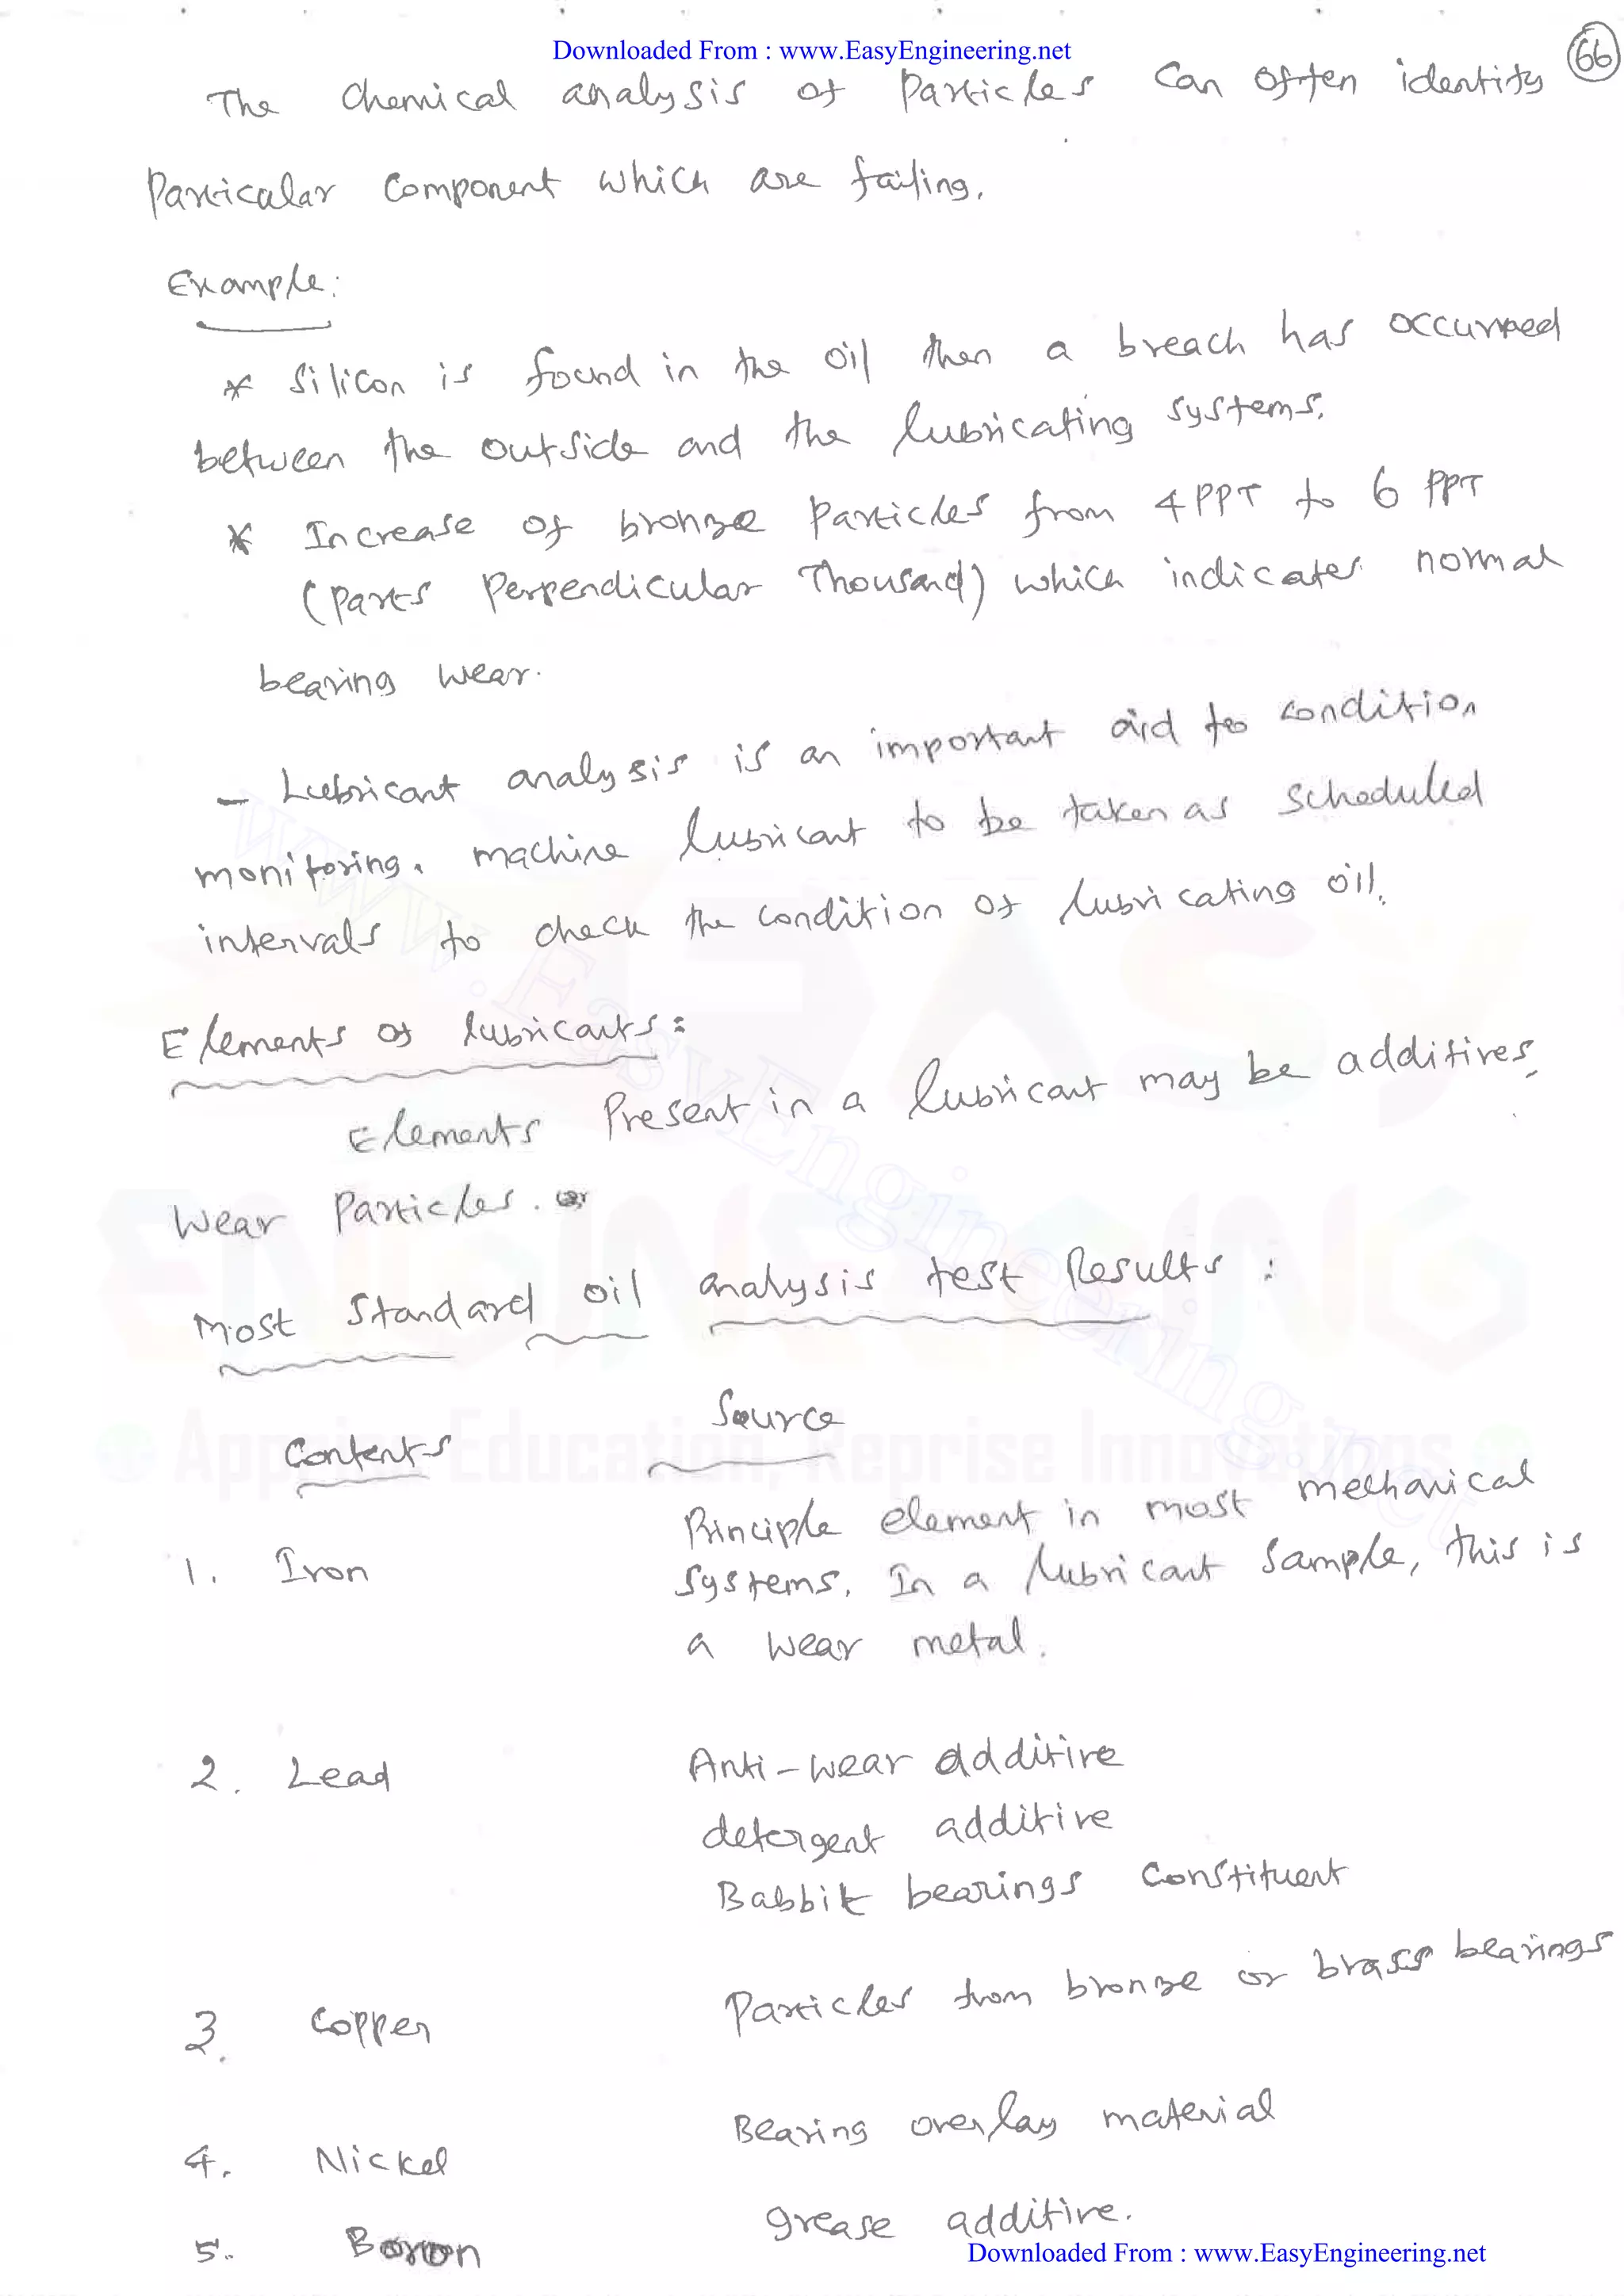 Downloaded From : www.EasyEngineering.net
66
The Chemical analysis of Particles Can often identify
Particular Component which are failing.
Example:
* Silicon is found in the oil then a breach has occurred
between the outside and the lubricating systems.
* Increase of bronze Particles from 4 PPT to 6 PPT
(Parts Perpendicular Thousand) which indicates normal
bearing wear.
- Lubricant analysis is an important aid to condition
monitoring. machine lubricant to be taken as scheduled
intervals to check the condition of lubricating oil.
Elements of lubricants:
Elements Present in a lubricant may be additives,
Wear Particles. or
Most Standard oil analysis test Results :
Contents Source
1. Iron Principle element in most mechanical
systems. In a lubricant sample, this is
a wear metal.
2. Lead Anti-wear additive
detergent additive
Babbit bearings Constituent
3. Copper Particles from bronze or brass bearings
4. Nickel Bearing overlay material
5. Boron grease additive.
Downloaded From : www.EasyEngineering.net
www.EasyEngineering.net
EASY
ENGINEERING
Appraise Education, Reprise Innovations